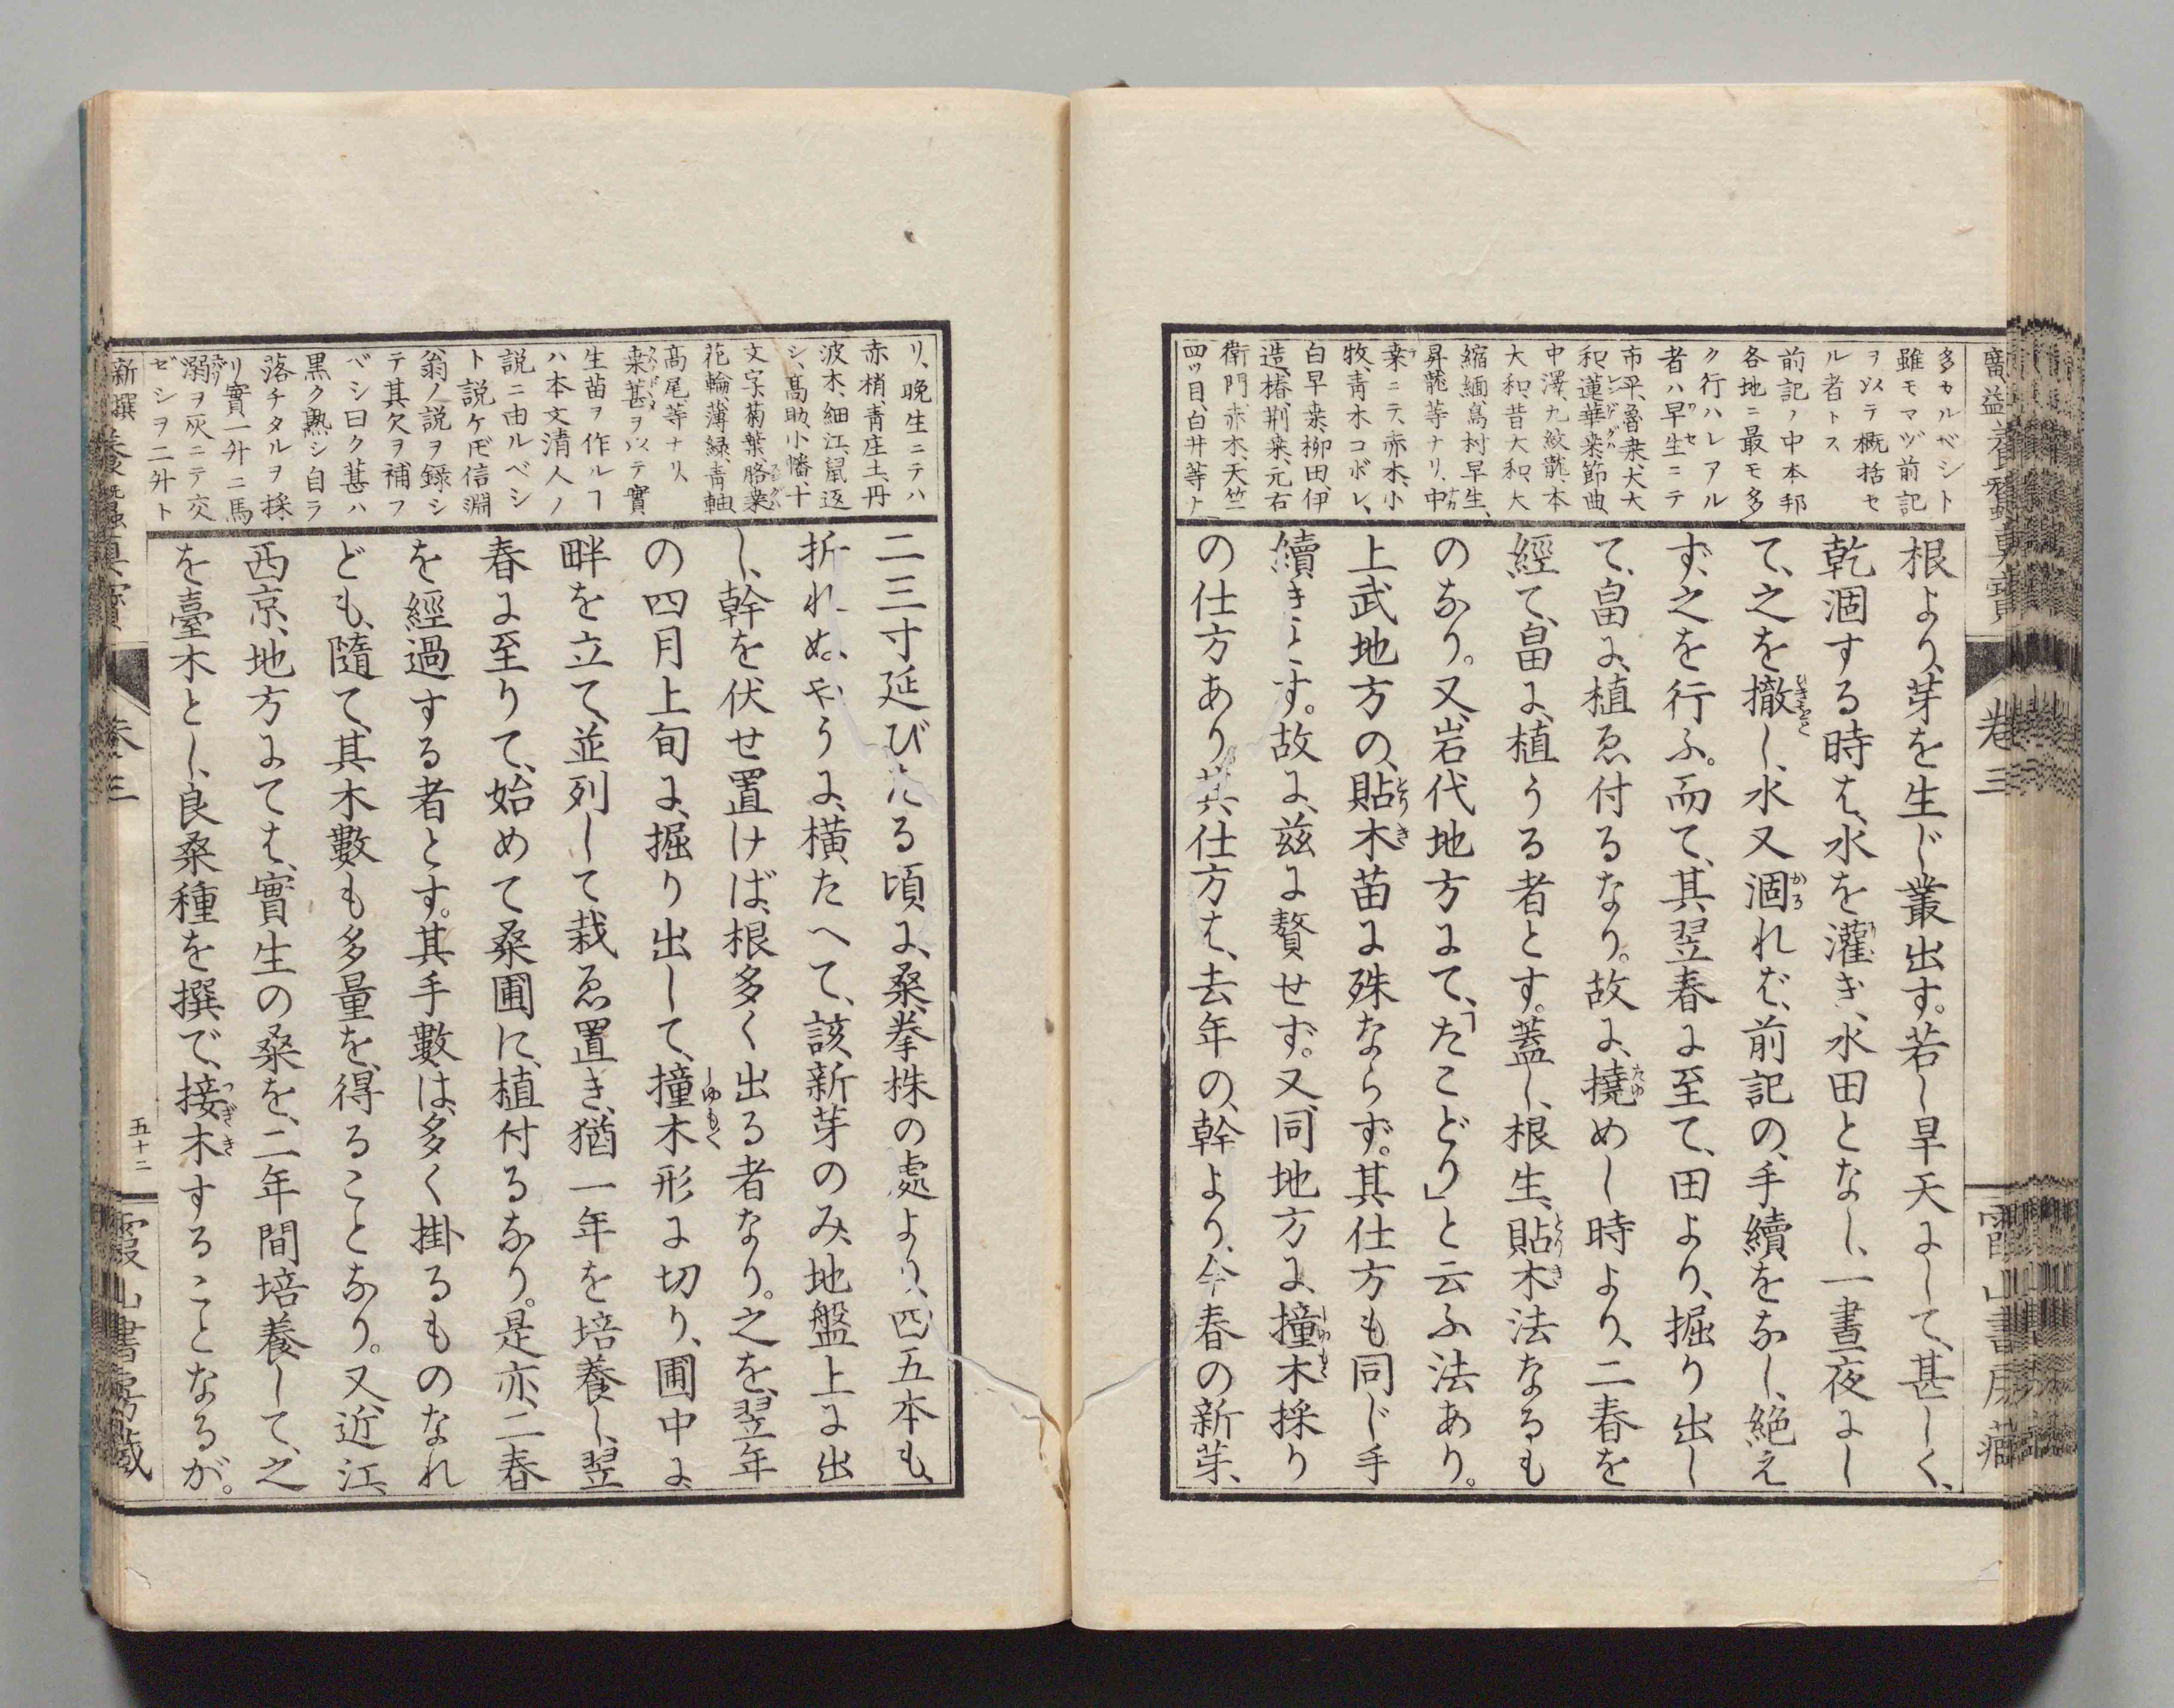 多カルベシト
雖モマヅ前記
ヲ以テ概括セ
ル者トス
前記ノ中本邦
各地ニ最モ多
ク行ハレアル
者ハ早生ニテ
市平、魯桒、犬大
和、蓮華桒、節曲
中澤、九紋龍、本
大和、昔大和、大
縮緬、島村早生、
昇龍等ナリ、中
桒ニテ、赤木、小
牧、青木コボレ、
白早桒、柳田、伊
造、椿、荊桒、元右
衛門、赤木、天竺
四ツ目、白井等ナ
根より、芽を生じ叢出す。若し旱天にして、甚しく、
乾涸する時は、水を灌ぎ、水田となし、一晝夜にし
て、之を撤し、水又涸れば、前記の、手續をなし、絶え
ず、之を行ふ。而て、其翌春に至て、田より、掘り出し
て、畠に、植ゑ付るなり。故に、撓めし時より、二春を
經て、畠に、植うる者とす。蓋し、根生、貼木法なるも
のなり。又、岩代地方にて、「たこどり」と云ふ法あり。
上武地方の、貼木苗に殊ならず。其仕方も同じ手
續きとす。故に、茲に贅せず。又、同地方に、撞木採り
の仕方あり、其仕方は、去年の、幹より、今春の新芽、
卷三
リ、晩生ニテハ
赤梢、青庄土、丹
波木、細江、鼠返
シ、高助、小幡、十
文字、菊葉、胳桒
花輪、薄緑、青軸、
高尾、等ナリ、
桒葚ヲ以テ實
生苗ヲ作ルヿ
ハ本文清人ノ
説ニ由ルベシ
ト説ケ𪜈信淵
翁ノ説ヲ録シ
テ其欠ヲ補フ
ベシ曰ク葚ハ
黒ク熟シ自ラ
落チタルヲ採
リ實一升ニ馬
溺ヲ灰ニテ交
ゼシヲ二升ト
二三寸延びたる頃に、桑拳株の處より、四五本も、
折れぬやうに、横たへて、該新芽のみ、地盤上に出
し、幹を伏せ置けば、根多く出る者なり。之を、翌年
の四月上旬に、掘り出して、撞木形に切り、圃中に
畔を立て、並列して、栽ゑ置き、猶一年を培養し、翌
春に至りて、始めて桑圃に、植付るなり。是亦、二春
を經過する者とす。其手數は、多く掛るものなれ
ども、隨て、其木數も多量を、得ることなり。又、近江、
西京、地方にては、實生の桑を、二年間培養して、之
を臺木とし、良桑種を撰で、接木することなるが。
五十二